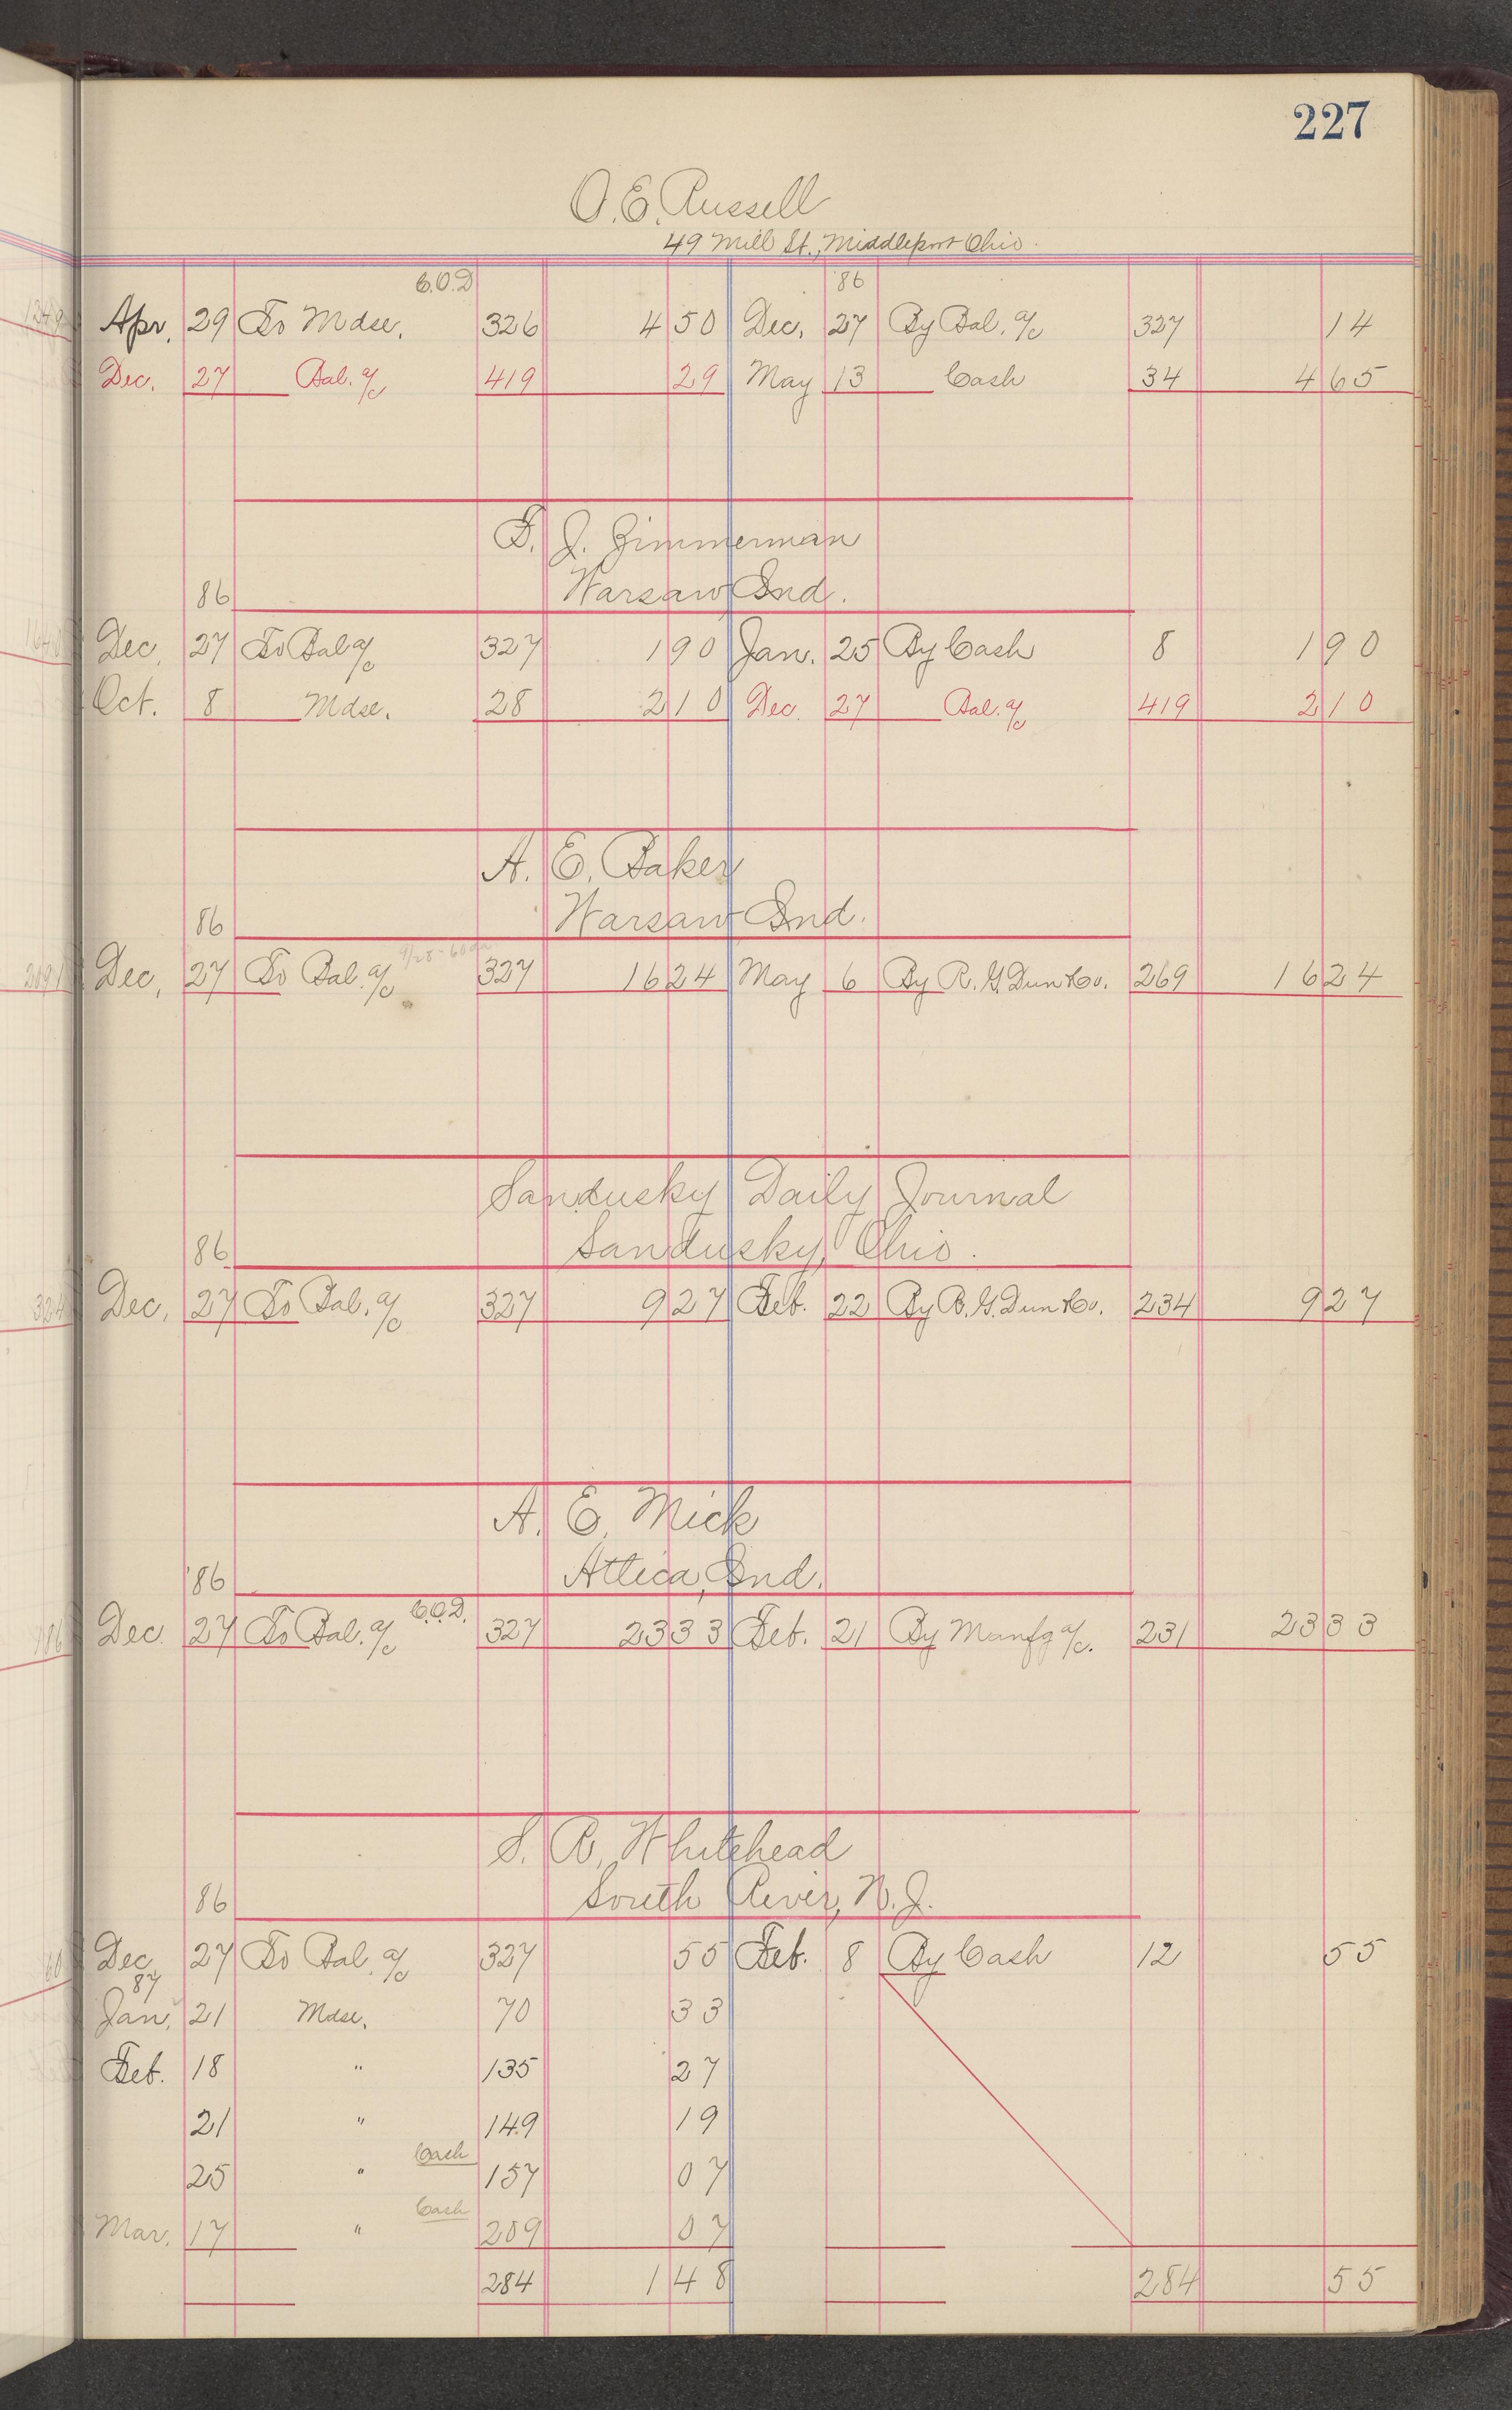 227
O. E. Russell
49 Mill St., Middleport Ohio.
C.O.D. 86
Apr. 29 To Mdse. 326 4 50 Dec. 27 By Bal. a/c 327 14
Dec. 27 Bal. a/c 419 29 May 13 Cash 34 4 65
F. J. Zimmerman
86 Warsaw Ind.
Dec. 27 To Bal a/c 327 1 90 Jan. 25 By Cash 8 1 90
Oct. 8 Mdse. 28 2 10 Dec. 27 Bal. a/c 419 2 10
A. E. Baker
86 Warsaw Ind.
Dec. 27 To Bal. a/c 327 16 24 May 6 By R. G. Dun & Co. 269 16 24
Sandusky Daily Journal
86 Sandusky, Ohio.
Dec. 27 To Bal. a/c 327 9 27 Feb. 22 By R. G. Dun & Co. 234 9 27
A. E. Mick
'86 Attica, Ind.
Dec. 27 To Bal. a/c C.O.D. 327 23 33 Feb. 21 By Manfg a/c. 231 23 33
S. R. Whitehead
86 South River, N. J.
Dec. 27 To Bal. a/c 327 55 Feb. 8 By Cash 12 55
87
Jan. 21 Mdse. 70 33
Feb. 18 " 135 27
21 " 149 19
25 " Cash 157 07
Mar. 17 " Cash 209 07
284 1 48 284 55